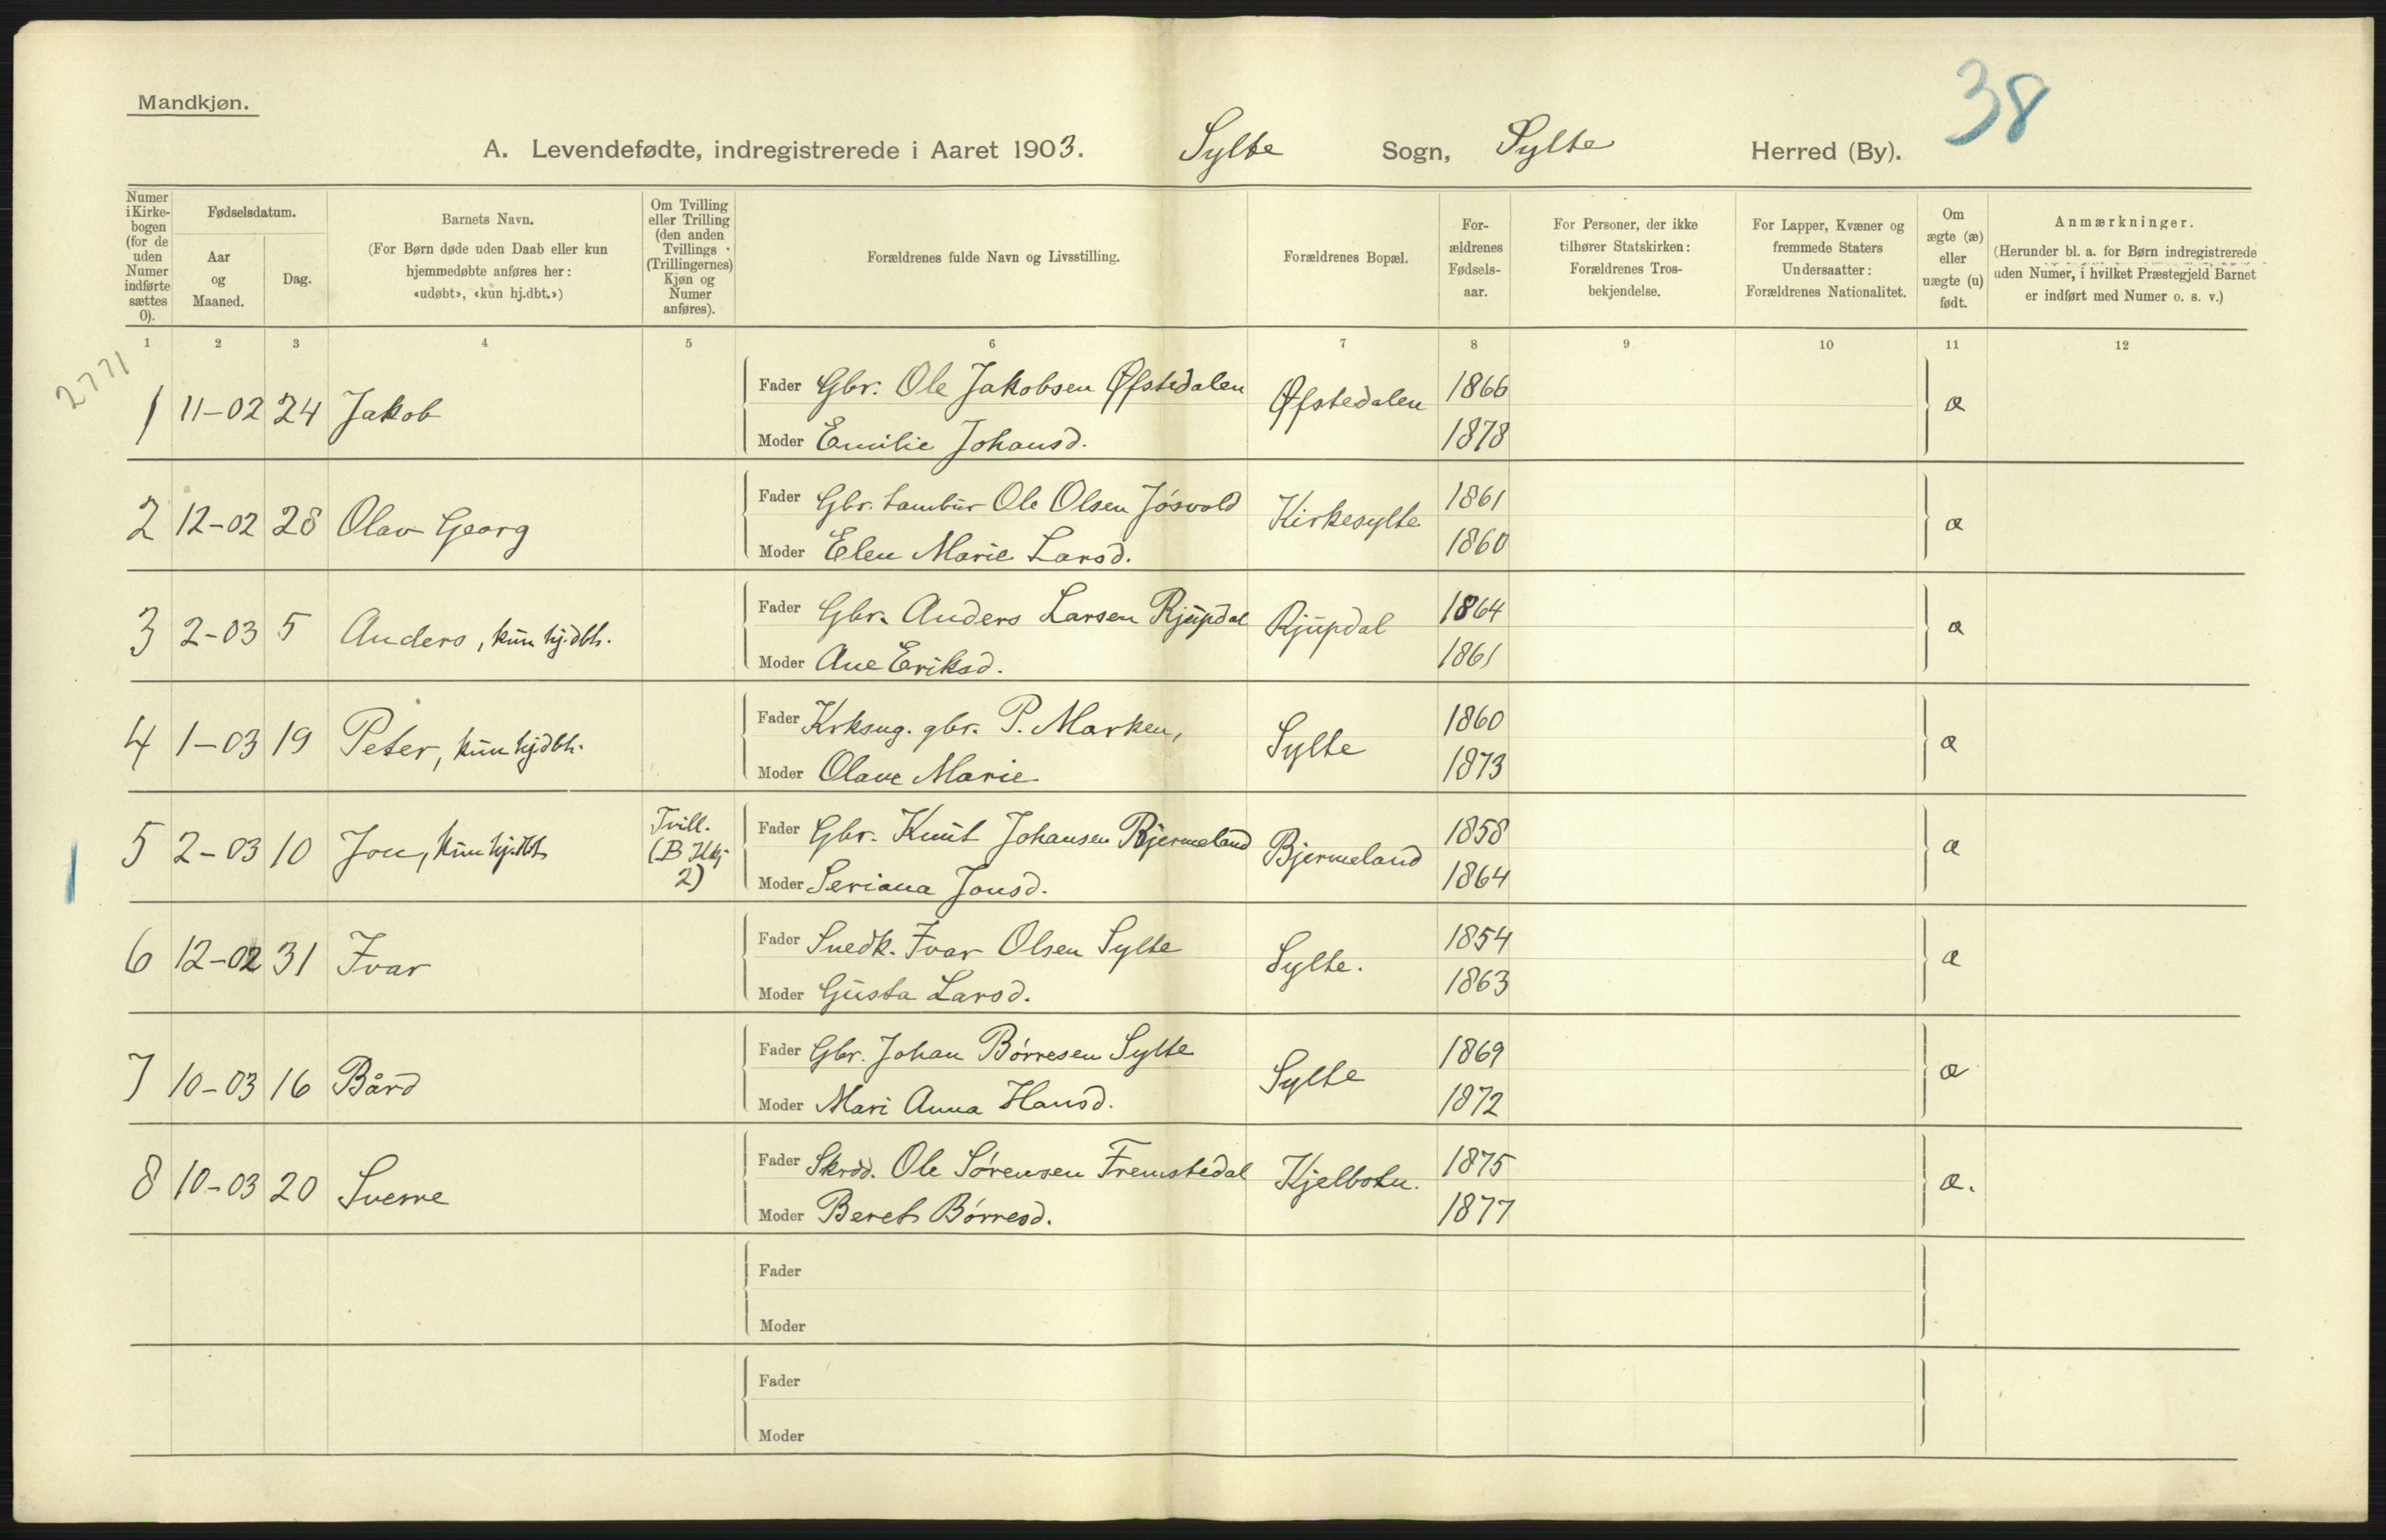 38
Mandkjøn.
A. Levendefødte, indregistrerede i Aaret 1903. Sylte Sogn, Sylte Herred (By).
Numer i Kirkebogen (for de uden Numer indførte sættes 0).
Fødselsdatum.
Aar og Maaned.
Dag.
Barnets Navn.
(For Børn døde uden Daab eller kun
hjemmedøbte anføres her:
«udøbt», «kun hj.dbt.»)
Om Tvilling
eller Trilling
(den anden
Tvillings
(Trillingernes)
Kjøn og
Numer
anføres).
Forældrenes fulde Navn og Livsstilling.
Forældrenes Bopæl.
For-
ældrenes
Fødsels-
aar.
For Personer, der ikke
tilhører Statskirken:
Forældrenes Tros-
bekjendelse.
For Lapper, Kvæner og
fremmede Staters
Undersaatter:
Forældrenes Nationalitet.
Om
ægte (æ)
eller
uægte (u)
født.
Anmærkninger.
(Herunder bl. a. for Børn indregistrerede
uden Numer, i hvilket Præstegjeld Barnet
er indført med Numer o. s. v.)
1 2 3 4 5 6 7 8 9 10 11 12
2771
1 11-02 24 Jakob Fader Gbr. Ole Jakobsen Øfstedalen Øfstedalen 1866 æ
Moder Emilie Johansd. 1878
2 12-02 28 Olav Georg Fader Gbr. tambur Ole Olsen Jøsvold Kirkesylte 1861 æ
Moder Elen Marie Larsd. 1860
3 2-03 5 Anders, kun hj.dbt. Fader Gbr. Anders Larsen Rjupdal Rjupdal 1864 æ
Moder Ane Eriksd. 1861
4 1-03 19 Peter, kun hjdbt. Fader Krksng. gbr. P. Marken, Sylte 1860 æ
Moder Olave Marie 1873
5 2-03 10 Jon, kun hj.dbt. Tvill. (B Kkj 2) Fader Gbr. Knut Johansen Bjermeland Bjermeland 1858 æ
Moder Seriana Jonsd. 1864
6 12-02 31 Ivar Fader Snedk. Ivar Olsen Sylte Sylte. 1854 æ
Moder Gusta Larsd. 1863
7 10-03 16 Bård Fader Gbr. Johan Børresen Sylte Sylte 1869 æ
Moder Mari Anna Hansd. 1872
8 10-03 20 Sverre Fader Skrdd. Ole Sørensen Fremstedal Kjelbotn. 1875 æ.
Moder Beret Børresd. 1877
Fader
Moder
Fader
Moder